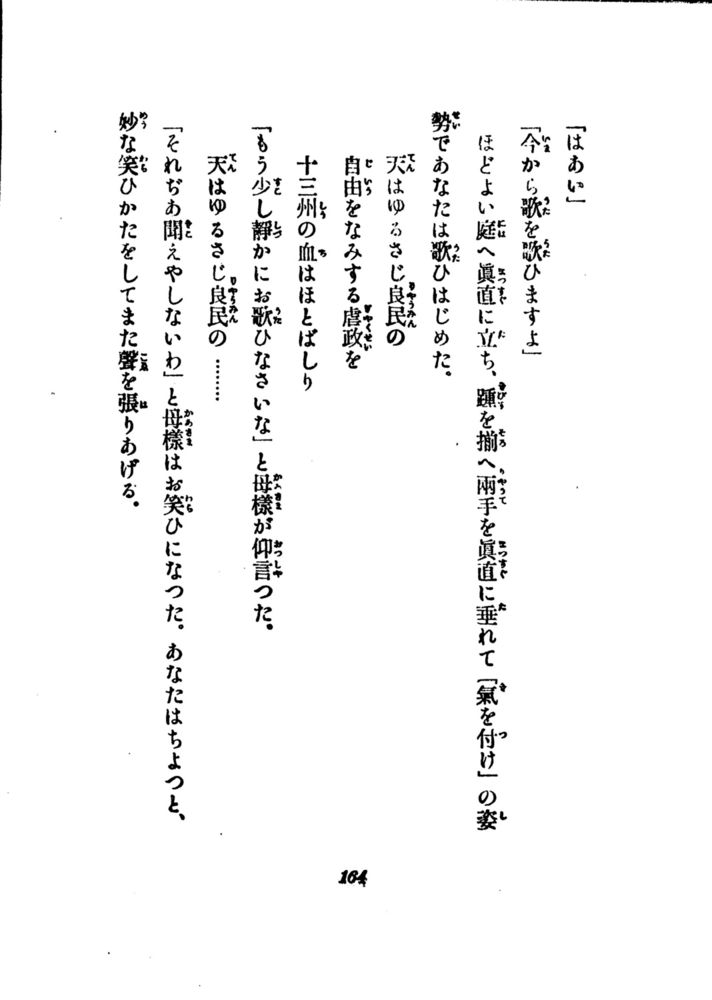 「はあい」
「今から歌を歌ひますよ」
ほどよい庭へ眞直に立ち、踵を揃へ兩手を眞直に垂れて「氣を付け」の姿
勢であなたは歌ひはじめた。
天はゆるさじ良民の
自由をなみする虐政を
十三州の血はほとばしり
「もう少し靜かにお歌ひなさいな」と母樣が仰言つた。
天はゆるさじ良民の………
「それぢあ聞えやしないわ」と母樣はお笑ひになつた。あなたはちよつと、
妙な笑ひかたをしてまた聲を張りあげる。
164